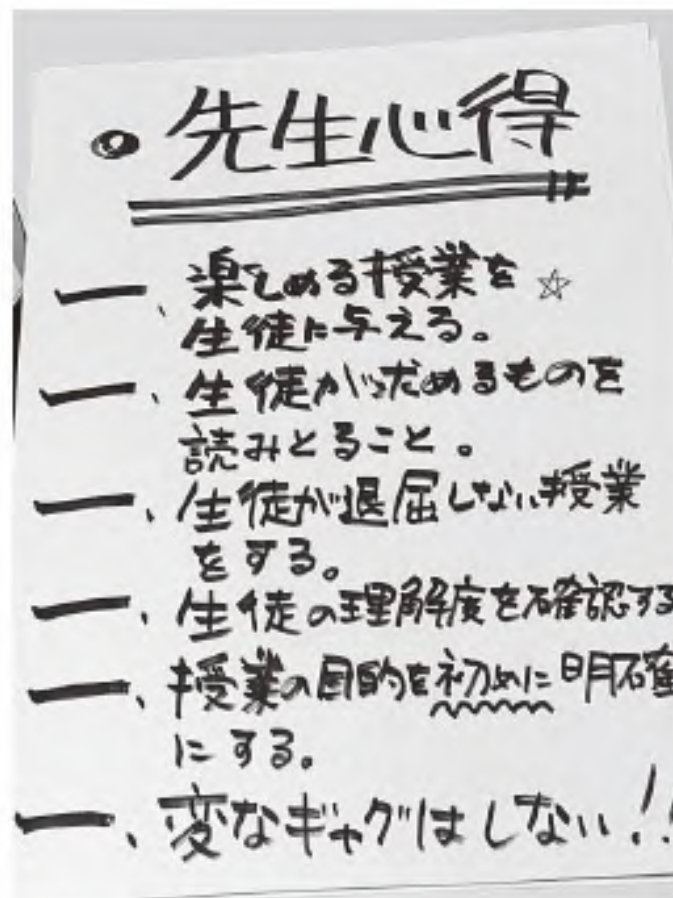 ・先生心得
一、楽しめる授業を☆
生徒に与える。
一、生徒が求めるものを
読みとること。
一、生徒が退屈しない授業
をする。
一、生徒の理解度を確認する
一、授業の目的を初めに明確
にする。
一、変なギャグはしない!!